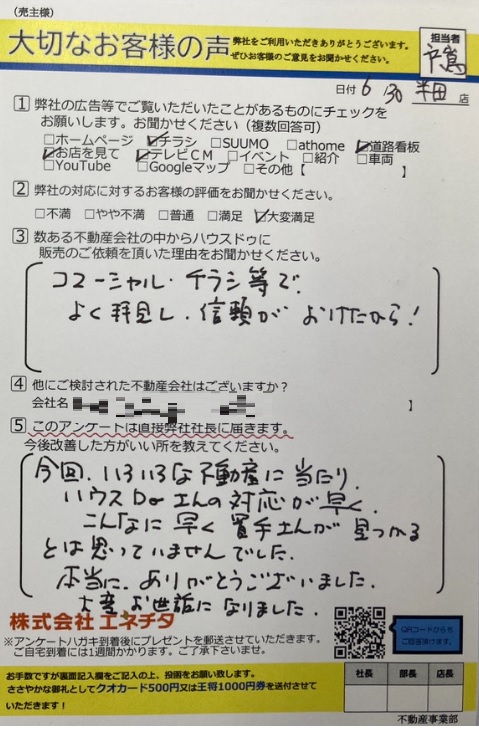 (売主様)
大切なお客様の声
弊社をご利用いただきありがとうございます。
ぜひお客様のご意見をお聞かせください。
担当者
日付 6/30 半田 店
1 弊社の広告等でご覧いただいたことがあるものにチェックを
お願いします。お聞かせください（複数回答可）
□ホームページ ☑チラシ □SUUMO □athome ☑道路看板
☑お店を見て ☑テレビCM □イベント □紹介 □車両
□YouTube □Googleマップ □その他【 】
2 弊社の対応に対するお客様の評価をお聞かせください。
□不満 □やや不満 □普通 □満足 ☑大変満足
3 数ある不動産会社の中からハウスドゥに
販売のご依頼を頂いた理由をお聞かせください。
コマーシャル・チラシ等で、
よく拝見し、信頼が おけたから！
4 他にご検討された不動産会社はございますか？
会社名 】
5 このアンケートは直接弊社社長に届きます。
今後改善した方がいい所を教えてください。
今回、いろいろな不動産に当たり、
ハウスDoさんの対応が早く、
こんなに早く買手さんが見つかる
とは思っていませんでした。
本当に、ありがとうございました。
大変お世話になりました。
株式会社 エネチタ
※アンケートハガキ到着後にプレゼントを郵送させていただきます。
ご自宅到着には1週間かかります。ご了承下さいませ。
QRコードからも
ご回答頂けます。
お手数ですが裏面記入欄をご記入の上、投函をお願い致します。
ささやかな御礼としてクオカード500円又は王将1000円券を送付させて
いただきます！
社長 部長 店長
不動産事業部